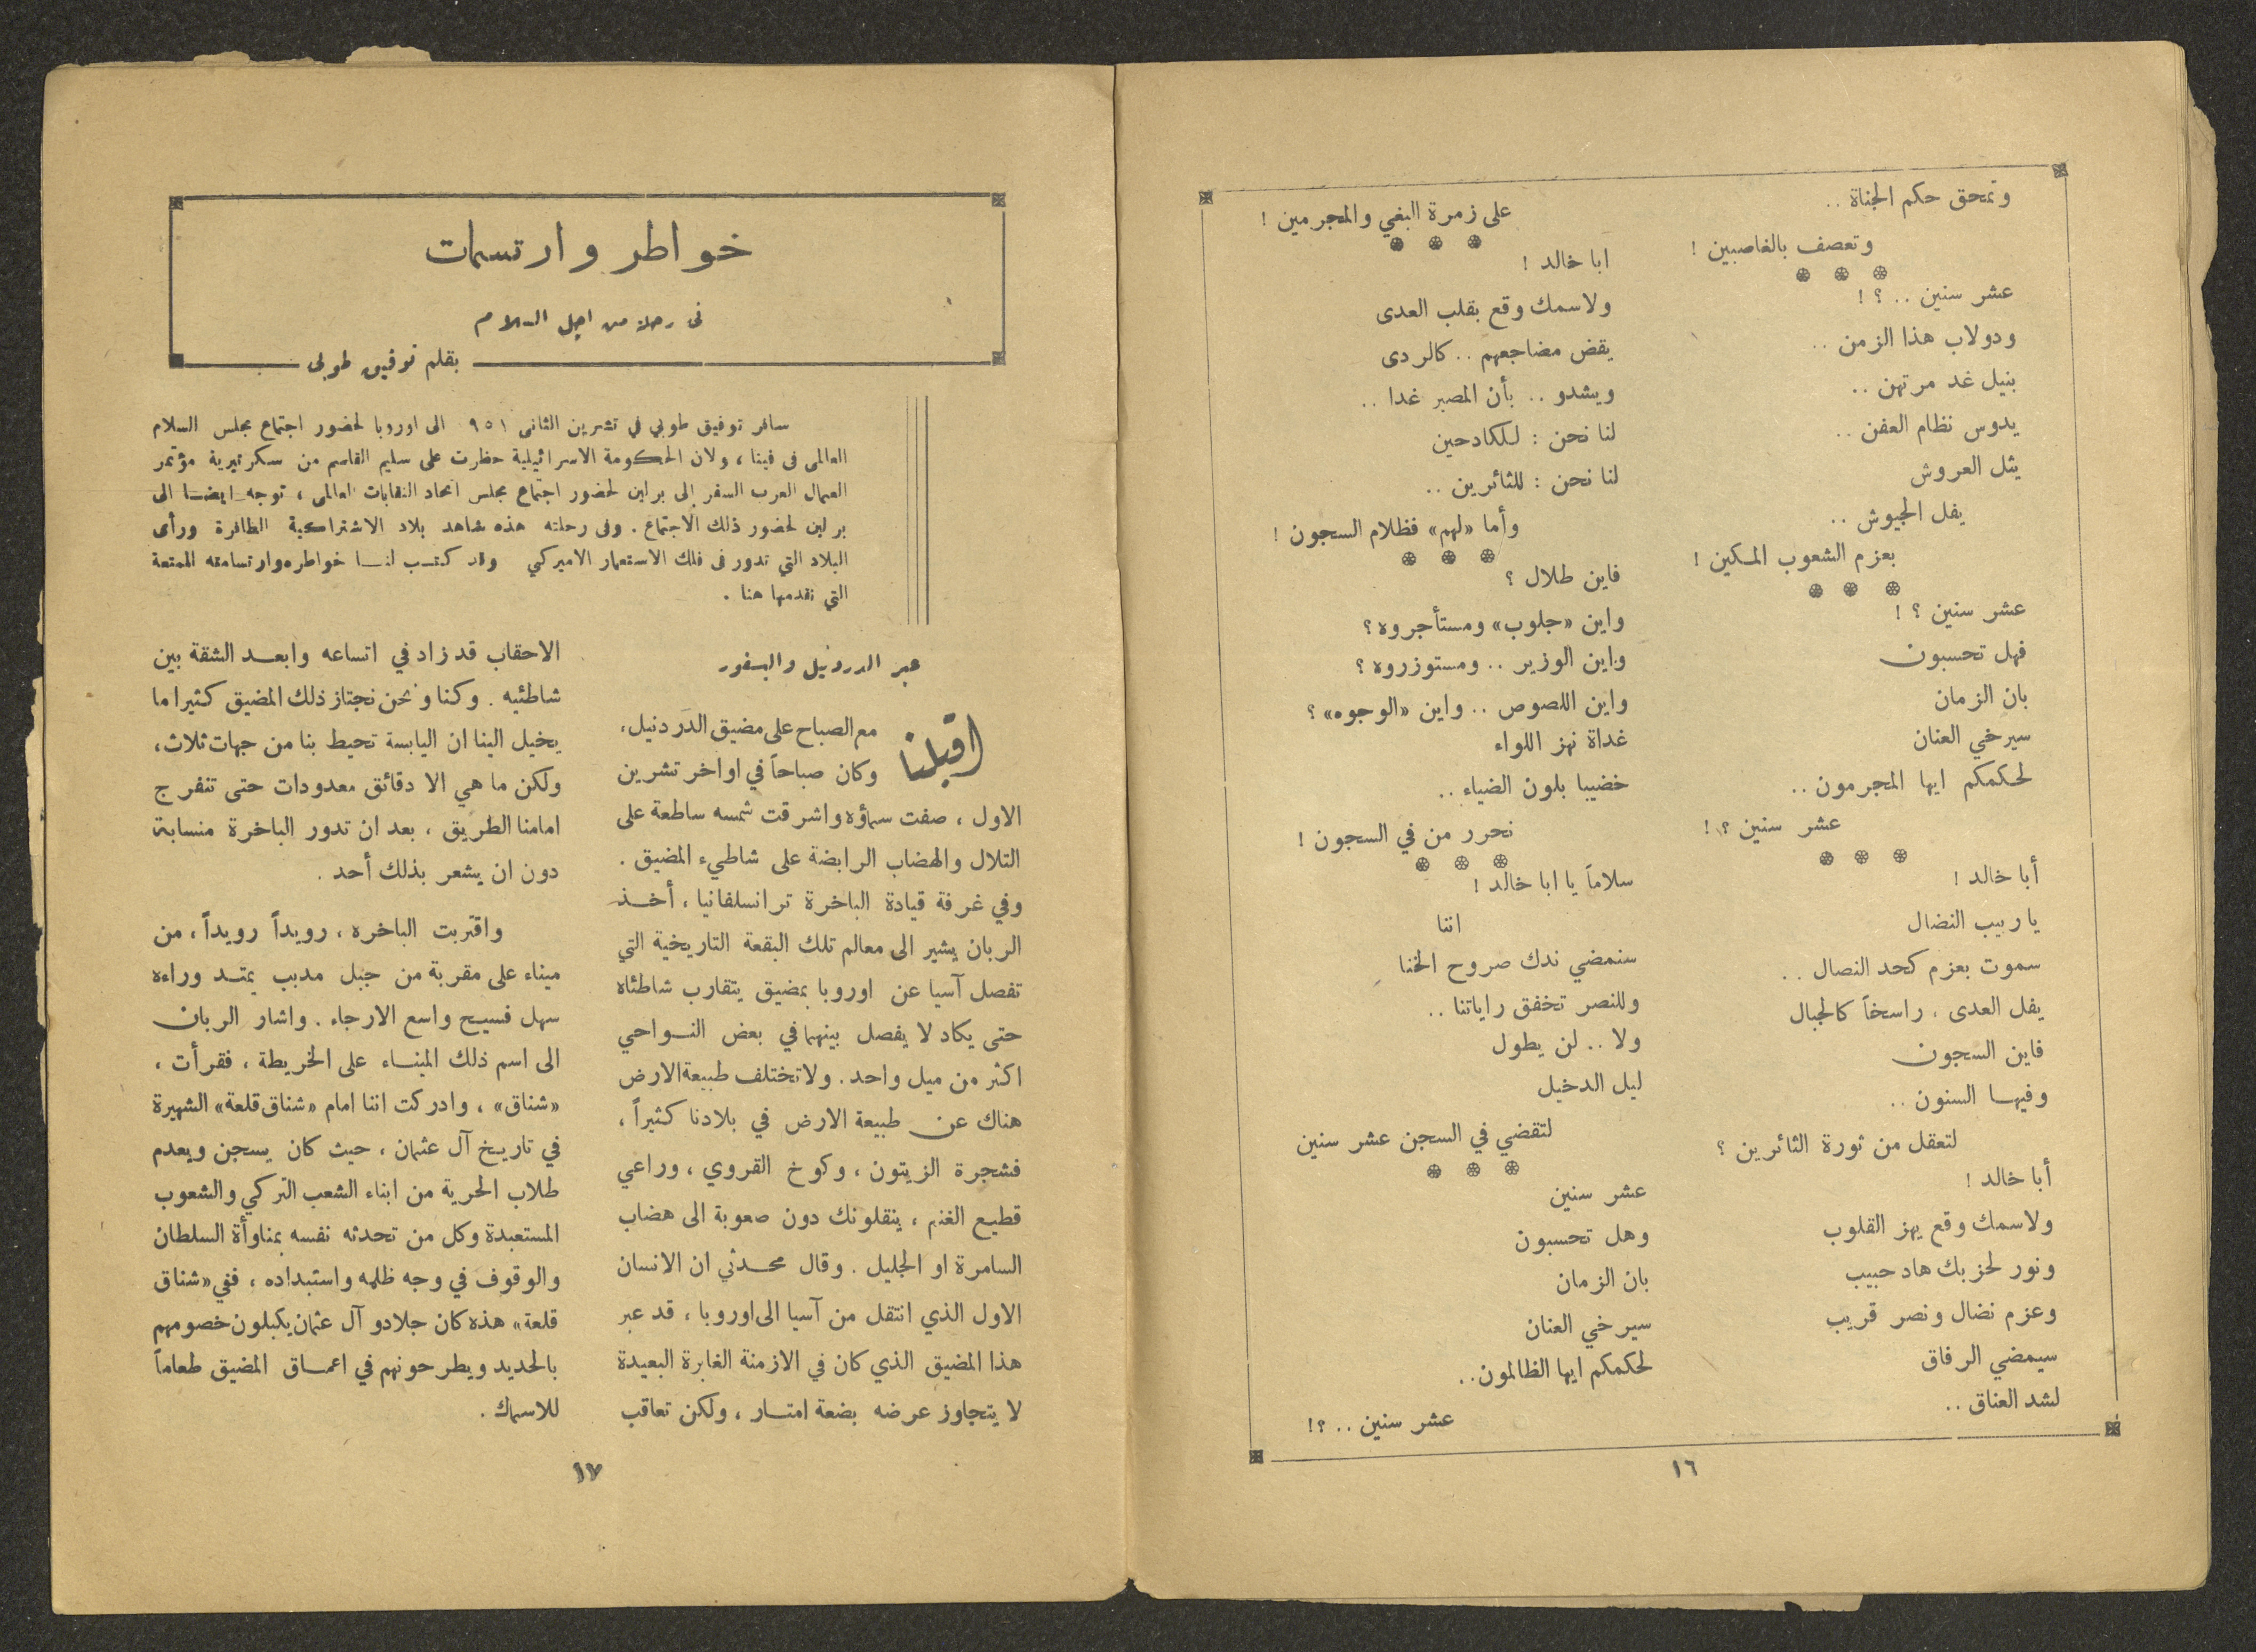 وتمحق حكم الجناة ..
وتعصف بالغاصبين !
عشر سنين .. ؟ !
ودولاب هذا الزمن ..
بنيل غد مرتهن ..
يدوس نظام العفن ..
يثل العروش
يفل الجيوش ..
بعزم الشعوب المكين !
عشر سنين ؟ !
فهل تحسبون
بان الزمان
سيرخي العنان
لحكمكم ايها المجرمون ..
عشر سنين ؟ !
أبا خالد !
يا ربيب النضال
سموت بعزم كحد النصال ..
يفل العدى ، راسخاً كالجبال
فاين السجون
وفيها السنون ..
لتعقل من ثورة الثائرين ؟
أبا خالد !
ولاسمك وقع يهز القلوب
ونور لحزبك هاد حبيب
وعزم نضال ونصر قريب
سيمضي الرفاق
لشد العناق ..
على زمرة البغي والمجرمين !
ابا خالد !
ولاسمك وقع بقلب العدى
يقض مضاجعهم .. كالردى
ويشدو .. بأن المصير غدا ..
لنا نحن : للكادحين
لنا نحن : للثائرين ..
وأما «لهم» فظلام السجون !
فاين طلال ؟
واين «جلوب» ومستأجروه ؟
واين الوزير .. ومستوزروه ؟
واين اللصوص .. واين «الوجوه» ؟
غداة نهز اللواء
خضيبا بلون الضياء ..
نحرر من في السجون !
سلاماً يا ابا خالد !
اننا
سنمضي ندك صروح الخنا
وللنصر تخفق راياتنا ..
ولا .. لن يطول
ليل الدخيل
لتقضي في السجن عشر سنين
عشر سنين
وهل تحسبون
بان الزمان
سيرخي العنان
لحكمكم ايها الظالمون ..
عشر سنين .. ؟!
١٦
خواطر وارتسمات
فى رحلة من اجل السلام
بقلم توفيق طوبى
سافر توفيق طوبي في تشرين الثانى ٩٥١ الى اوروبا لحضور اجتماع مجلس السلام
العالمى فى فينا ، ولان الحكومة الاسرائيلية حظرت على سليم القاسم من سكرتيرية مؤتمر
العمال العرب السفر إلى برلين لحضور اجتماع مجلس اتحاد النقابات العالمى ، توجه ايضا الى
برلين لحضور ذلك الاجتماع . وفى رحلته هذه شاهد بلاد الاشتراكية الظافرة ورأى
البلاد التي تدور فى فلك الاستعمار الاميركي وقد كتب لنا خواطره وارتسامته الممتعة
التي نقدمها هنا .
عبر الدردنيل والبسفور
اقبلنا مع الصباح على مضيق الدردنيل،
وكان صباحاً في اواخر تشرين
الاول ، صفت سماؤه واشرقت شمسه ساطعة على
التلال والهضاب الرابضة على شاطيء المضيق .
وفي غرفة قيادة الباخرة ترانسلفانيا ، أخذ
الربان يشير الى معالم تلك البقعة التاريخية التي
تفصل آسيا عن اوروبا بمضيق يتقارب شاطئاه
حتى يكاد لا يفصل بينهما في بعض النواحي
اكثر من ميل واحد . ولا تختلف طبيعة الارض
هناك عن طبيعة الارض في بلادنا كثيراً ،
فشجرة الزيتون ، وكوخ القروي ، وراعي
قطيع الغنم ، ينقلونك دون صعوبة الى هضاب
السامرة او الجليل . وقال محدثي ان الانسان
الاول الذي انتقل من آسيا الى اوروبا ، قد عبر
هذا المضيق الذي كان في الازمنة الغابرة البعيدة
لا يتجاوز عرضه بضعة امتار ، ولكن تعاقب
الاحقاب قد زاد في اتساعه وابعد الشقة بين
شاطئيه . وكنا ونحن نجتاز ذلك المضيق كثيرا ما
يخيل الينا ان اليابسة تحيط بنا من جهات ثلاث ،
ولكن ما هي الا دقائق معدودات حتى تنفرج
امامنا الطريق ، بعد ان تدور الباخرة منسابة
دون ان يشعر بذلك أحد .
واقتربت الباخره ، رويداً رويداً ، من
ميناء على مقربة من جبل مدبب يمتد وراءه
سهل فسيح واسع الارجاء . واشار الربان
الى اسم ذلك الميناء على الخريطة ، فقرأت ،
«شناق» ، وادركت اننا امام «شناق قلعة» الشهيرة
في تاريخ آل عثمان ، حيث كان يسجن ويعدم
طلاب الحرية من ابناء الشعب التركي والشعوب
المستعبدة وكل من تحدثه نفسه بمناوأة السلطان
والوقوف في وجه ظلمه واستبداده ، ففي «شناق
قلعة» هذه كان جلادو آل عثمان يكبلون خصومهم
بالحديد ويطرحونهم في اعماق المضيق طعاماً
للاسماك .
١٧